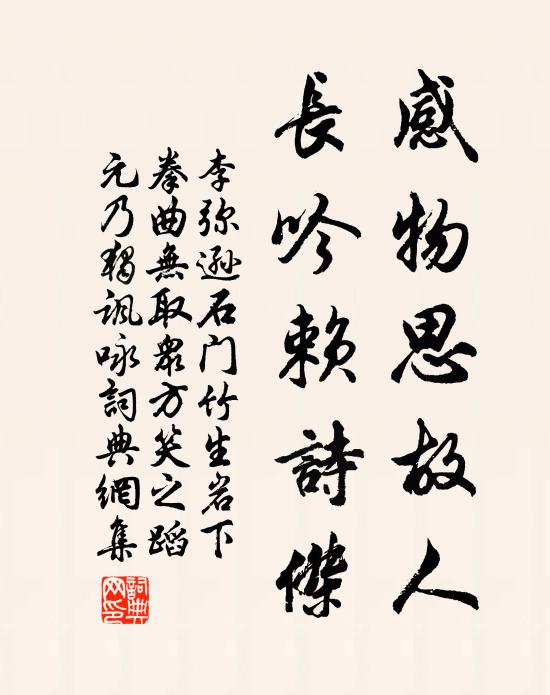 感物思故人
長吟賴詩傑
李弥遜石门竹生岩下
拳曲無取眾方笑之蹈
元乃獨諷咏詞典網集
詞典網印